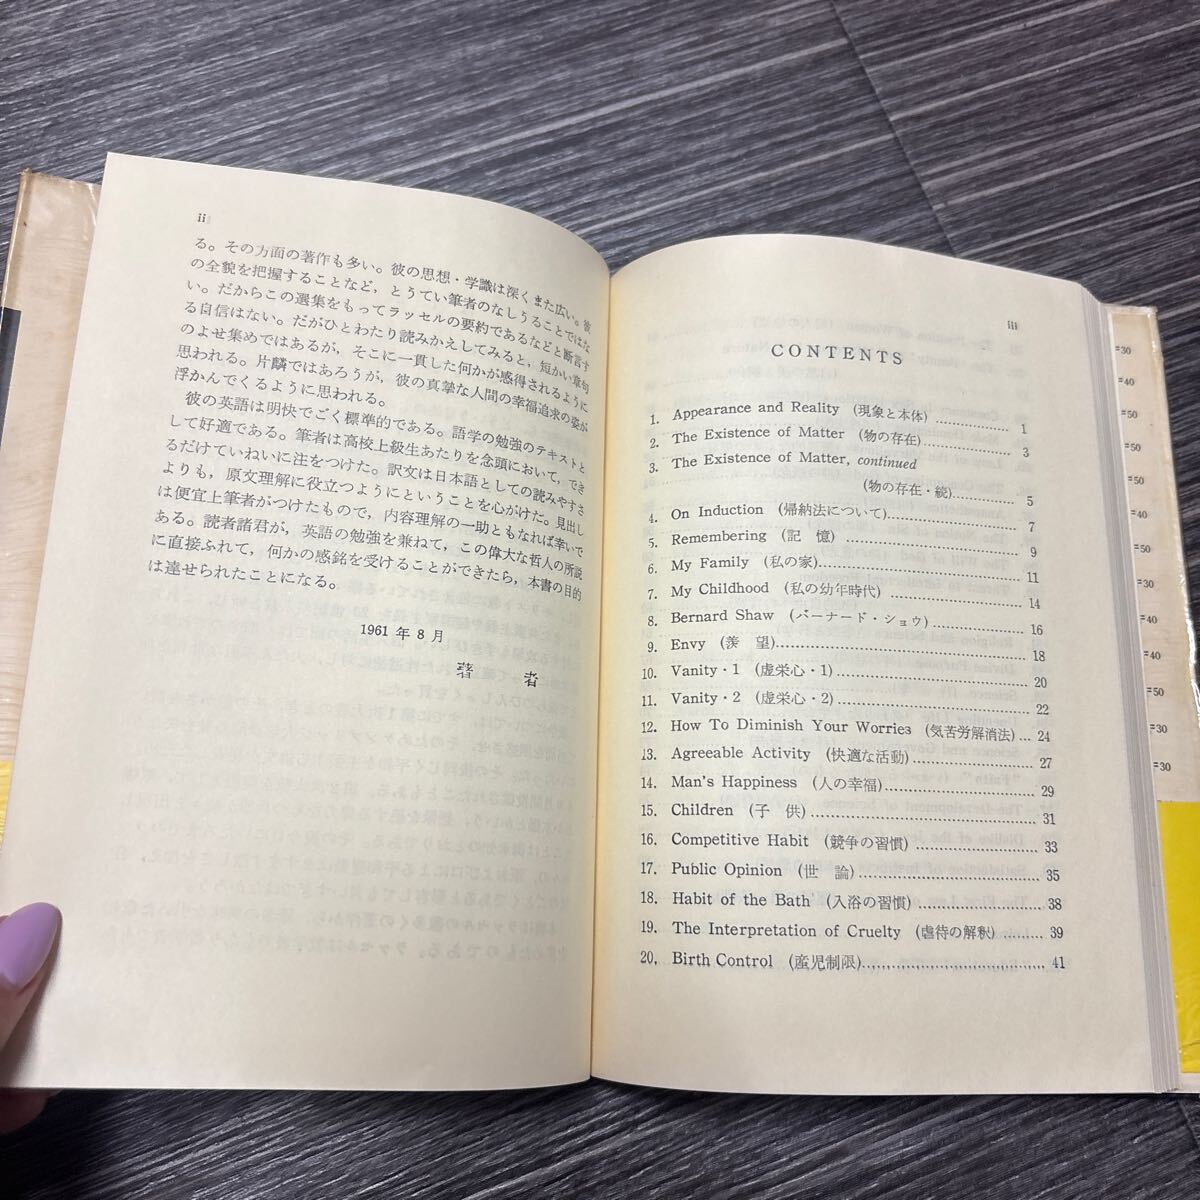 ii
る。その方面の著作も多い。彼の思想・学識は深くまた広い。彼
の全貌を把握することなど，とうてい筆者のなしうることではな
い。だからこの選集をもってラッセルの要約であるなどと断言す
る自信はない。だがひとわたり読みかえしてみると，短かい章句
のよせ集めではあるが，そこに一貫した何かが感得されるように
思われる。片鱗ではあろうが，彼の真摯な人間の幸福追求の姿が
浮かんでくるように思われる。
彼の英語は明快でごく標準的である。語学の勉強のテキストと
して好適である。筆者は高校上級生あたりを念頭において，でき
るだけていねいに注をつけた。訳文は日本語としての読みやすさ
よりも，原文理解に役立つようにということを心がけた。見出し
は便宜上筆者がつけたもので，内容理解の一助ともなれば幸いで
ある。読者諸君が，英語の勉強を兼ねて，この偉大な哲人の所説
に直接ふれて，何かの感銘を受けることができたら，本書の目的
は達せられたことになる。
1961 年 8 月
著 者
iii
CONTENTS
1. Appearance and Reality (現象と本体) 1
2. The Existence of Matter (物の存在) 3
3. The Existence of Matter, continued
(物の存在・続) 5
4. On Induction (帰納法について) 7
5. Remembering (記 憶) 9
6. My Family (私の家) 11
7. My Childhood (私の幼年時代) 14
8. Bernard Shaw (バーナード・ショウ) 16
9. Envy (羨 望) 18
10. Vanity・1 (虚栄心・1) 20
11. Vanity・2 (虚栄心・2) 22
12. How To Diminish Your Worries (気苦労解消法) 24
13. Agreeable Activity (快適な活動) 27
14. Man's Happiness (人の幸福) 29
15. Children (子 供) 31
16. Competitive Habit (競争の習慣) 33
17. Public Opinion (世 論) 35
18. Habit of the Bath (入浴の習慣) 38
19. The Interpretation of Cruelty (虐待の解釈) 39
20. Birth Control (産児制限) 41
=30
=40
=50
=50
=30
=40
=50
=30
=30